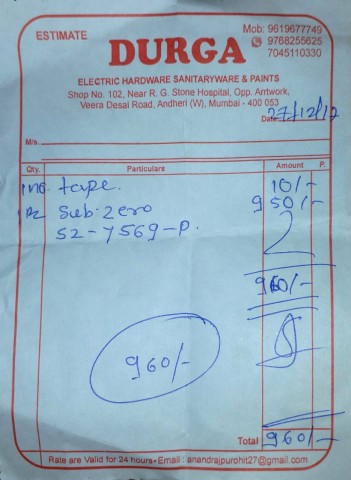 ESTIMATE
Mob: 9619677749
9768255625
7045110330
DURGA
ELECTRIC HARDWARE SANITARYWARE & PAINTS
Shop No. 102, Near R. G. Stone Hospital, Opp. Antwork,
Veera Desai Road, Andheri (W), Mumbai - 400 053
Date 27/12/17
M/s.
Qty. Particulars Amount P.
1 no. tape. 10/-
1 Pc Sub-Zero 950/-
52-7569-P.
960/-
960/-
Total 960/-
Rate are Valid for 24 hours - Email : anandrajpurohit27@gmail.com